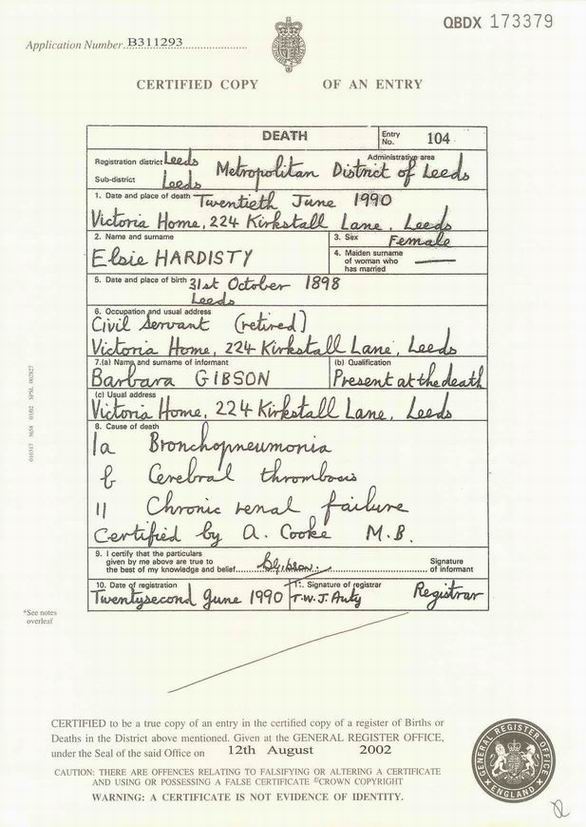 QBDX 173379
Application Number B311293
CERTIFIED COPY OF AN ENTRY
DEATH Entry No. 104
Registration district Leeds Administrative area
Sub-district Leeds Metropolitan District of Leeds
1. Date and place of death Twentieth June 1990
Victoria Home, 224 Kirkstall Lane, Leeds
2. Name and surname
Elsie HARDISTY
3. Sex Female
4. Maiden surname of woman who has married
5. Date and place of birth 31st October 1898
Leeds
6. Occupation and usual address
Civil Servant (retired)
Victoria Home, 224 Kirkstall Lane, Leeds
7.(a) Name and surname of informant
Barbara GIBSON
(b) Qualification
Present at the death
(c) Usual address
Victoria Home, 224 Kirkstall Lane, Leeds
8. Cause of death
1a Bronchopneumonia
b Cerebral thrombosis
11 Chronic renal failure
Certified by A. Cooke M.B.
9. I certify that the particulars
given by me above are true to
the best of my knowledge and belief
Signature
of informant
10. Date of registration
Twentysecond June 1990
11. Signature of registrar
T.W.J. Auty Registrar
*See notes
overleaf
CERTIFIED to be a true copy of an entry in the certified copy of a register of Births or
Deaths in the District above mentioned. Given at the GENERAL REGISTER OFFICE,
under the Seal of the said Office on 12th August 2002
CAUTION: THERE ARE OFFENCES RELATING TO FALSIFYING OR ALTERING A CERTIFICATE
AND USING OR POSSESSING A FALSE CERTIFICATE ©CROWN COPYRIGHT
WARNING: A CERTIFICATE IS NOT EVIDENCE OF IDENTITY.
GENERAL REGISTER OFFICE
ENGLAND